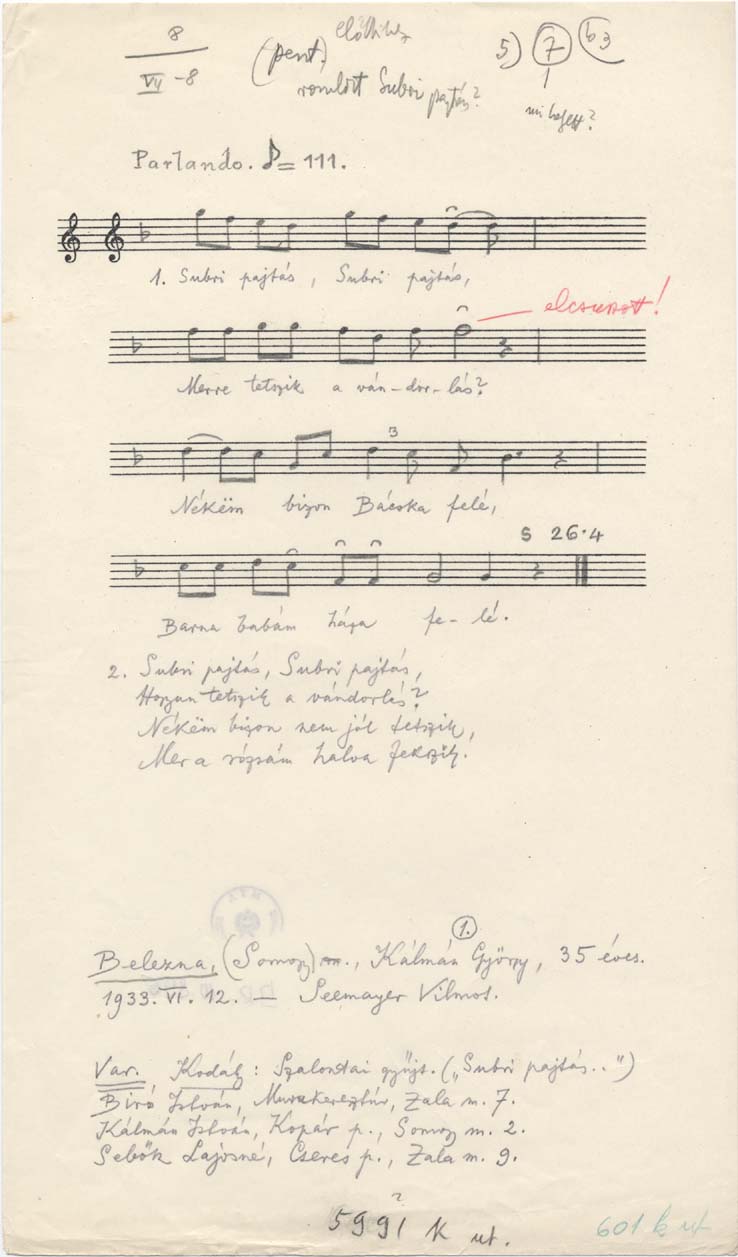 8
VII -8
(pent.)
romlott Subri pajtás?
5) 7 b3
1
mi lehett?
Parlando. ♪= 111.
1. Subri pajtás, Subri pajtás,
elcsuszott!
Merre tetszik a ván-dor-lás?
3
Nékëm bizon Bácska felé,
S 26.4
Barna babám háza fe-lé.
2. Subri pajtás, Subri pajtás,
Hogyan tetszik a vándorlás?
Nékëm bizon nem jól tetszik,
Mer a rózsám halva fekszik.
1.
Belezna, (Somogy) m., Kálmán György, 35 éves.
1933. VI. 12. — Seemayer Vilmos.
Var. Kodály: Szalontai gyűjt. („Subri pajtás..")
Biró István, Murakeresztúr, Zala m. 7.
Kálmán István, Kopár p., Somogy m. 2.
Sebők Lajosné, Cseres p., Zala m. 9.
?
5991 k ut.
601 k ut